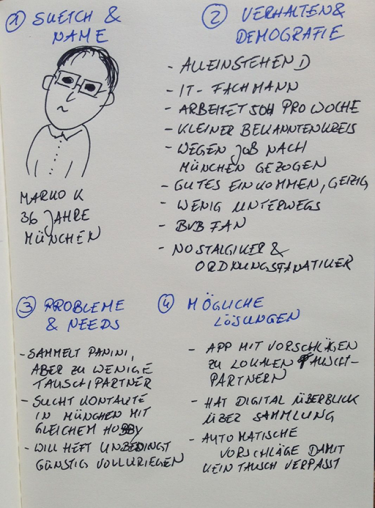 ① SKETCH &
NAME
MARKO K
36 JAHRE
MÜNCHEN
② VERHALTEN &
DEMOGRAFIE
- ALLEINSTEHEND
- IT-FACHMANN
- ARBEITET 50H PRO WOCHE
- KLEINER BEKANNTENKREIS
- WEGEN JOB NACH
MÜNCHEN GEZOGEN
- GUTES EINKOMMEN, GEIZIG
- WENIG UNTERWEGS
- BVB FAN
- NOSTALGIKER &
ORDNUNGSFANATIKER
③ PROBLEME
& NEEDS
- SAMMELT PANINI,
ABER ZU WENIGE
TAUSCHPARTNER
- SUCHT KONTAKTE
IN MÜNCHEN MIT
GLEICHEM HOBBY
- WILL HEFT UNBEDINGT
GÜNSTIG VOLLKRIEGEN
④ MÖGLICHE
LÖSUNGEN
- APP MIT VORSCHLÄGEN
ZU LOKALEN TAUSCH-
PARTNERN
- HAT DIGITAL ÜBERBLICK
ÜBER SAMMLUNG
- AUTOMATISCHE
VORSCHLÄGE DAMIT
KEIN TAUSCH VERPASST